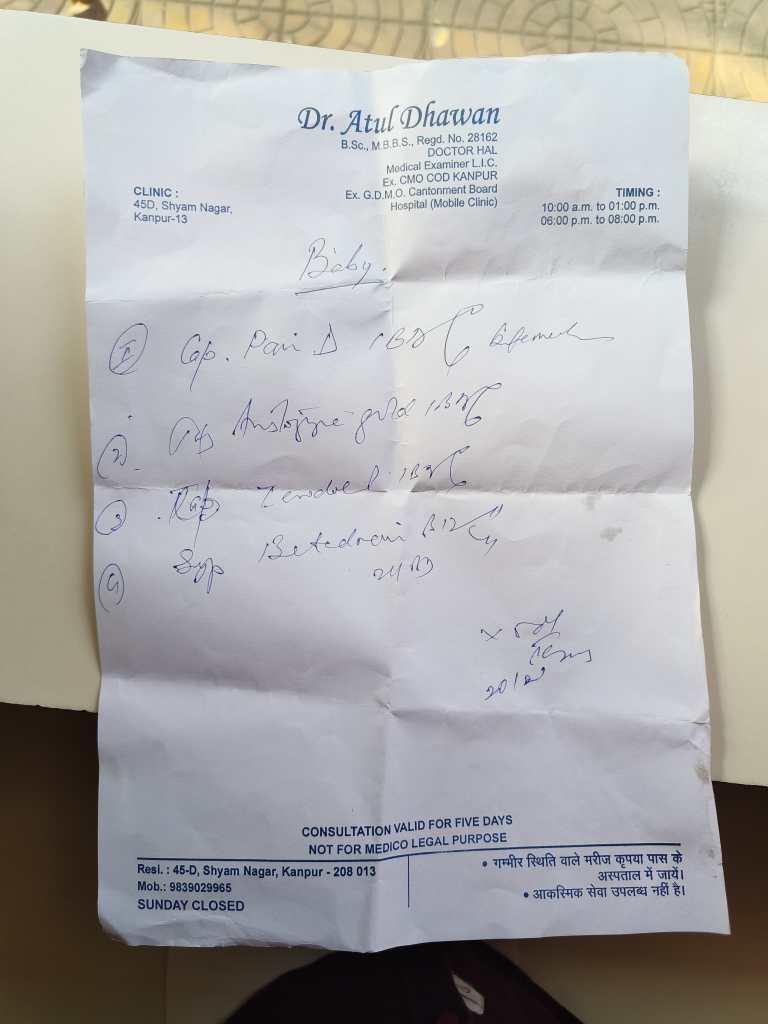 Dr. Atul Dhawan
B.Sc., M.B.B.S., Regd. No. 28162
DOCTOR HAL
Medical Examiner L.I.C.
Ex. CMO COD KANPUR
Ex. G.D.M.O. Cantonment Board
Hospital (Mobile Clinic)
CLINIC :
45D, Shyam Nagar,
Kanpur-13
TIMING :
10:00 a.m. to 01:00 p.m.
06:00 p.m. to 08:00 p.m.
Baby.
1 Cap. Pan D 1 BD
2 Cap gold 1 BD
3 Tab Zerodol 1 BD
4 Syp
CONSULTATION VALID FOR FIVE DAYS
NOT FOR MEDICO LEGAL PURPOSE
Resi. : 45-D, Shyam Nagar, Kanpur - 208 013
Mob.: 9839029965
SUNDAY CLOSED
• गम्भीर स्थिति वाले मरीज कृपया पास के
अस्पताल में जायें।
• आकस्मिक सेवा उपलब्ध नहीं है।